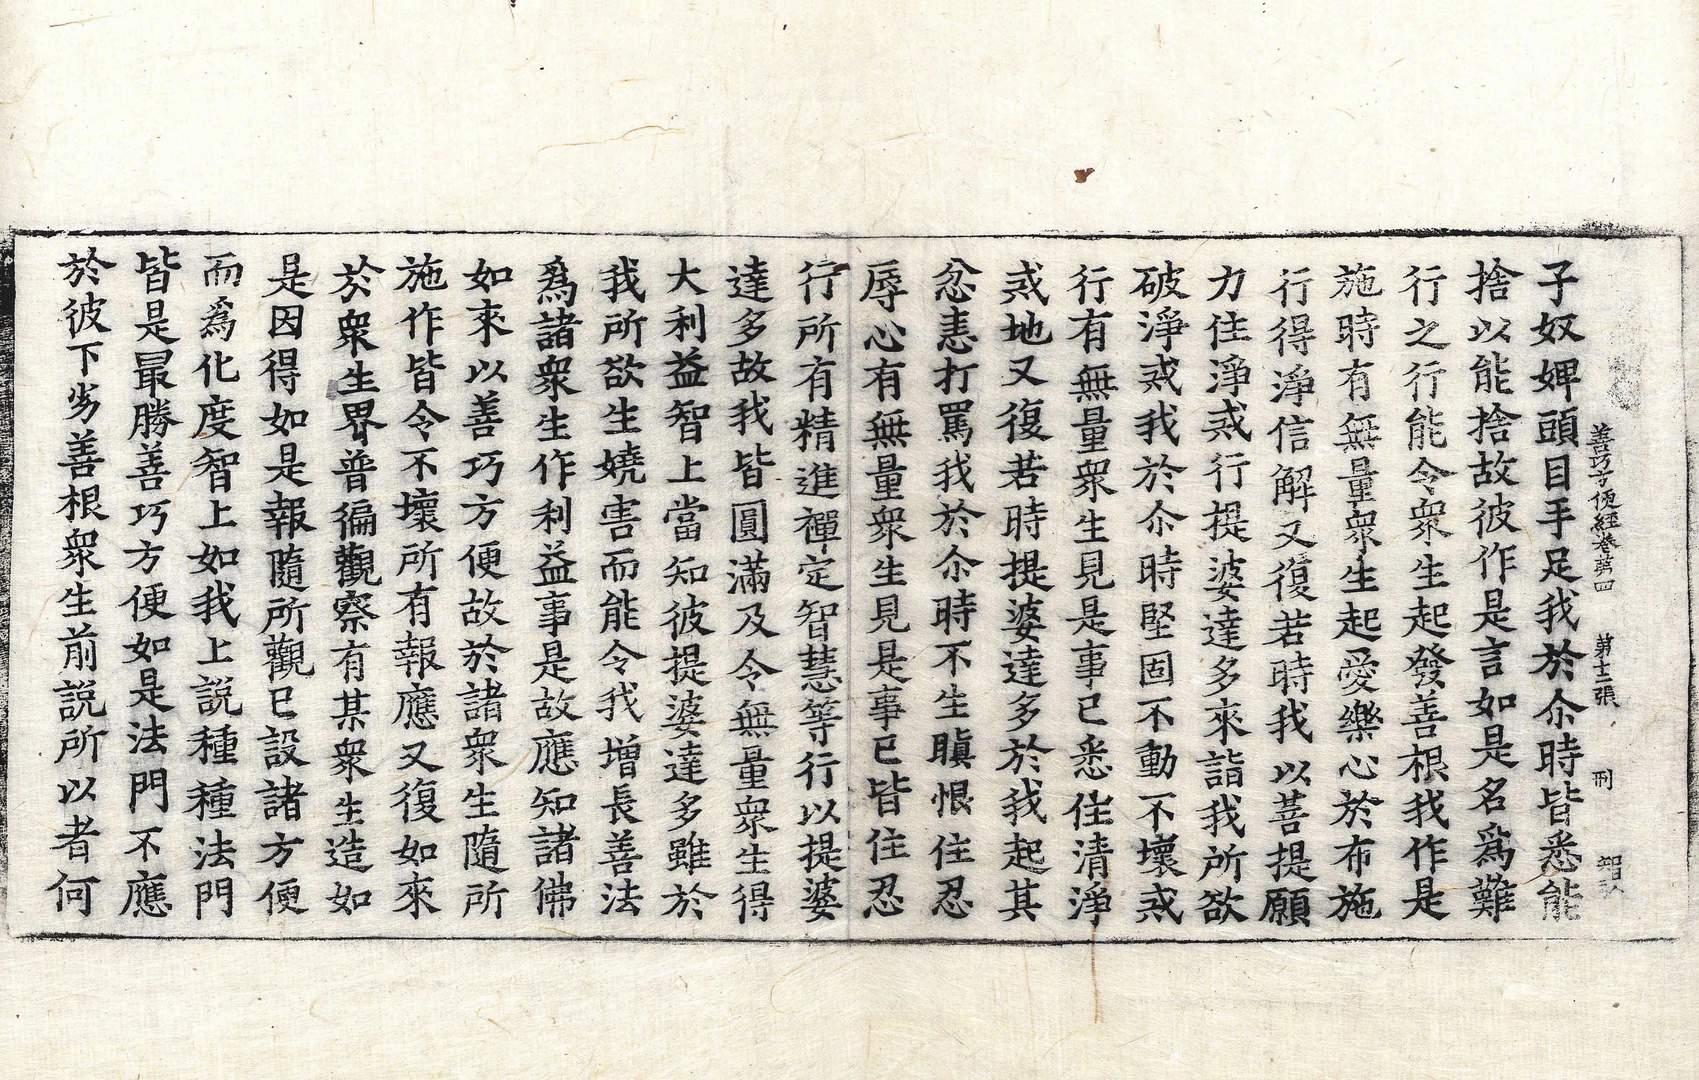 善巧方便經卷第四　第十二張　刑
子奴婢頭目手足我於尒時皆悉能
捨以能捨故彼作是言如是名爲難
行之行能令衆生起發善根我作是
施時有無量衆生起愛樂心於布施
行得淨信解又復若時我以菩提願
力住淨戒行提婆達多來詣我所欲
破淨戒我於尒時堅固不動不壞戒
行有無量衆生見是事已悉住清淨
戒地又復若時提婆達多於我起其
忿恚打罵我於尒時不生瞋恨住忍
辱心有無量衆生見是事已皆住忍
行所有精進禪定智慧等行以提婆
達多故我皆圓滿及令無量衆生得
大利益智上當知彼提婆達多雖於
我所欲生嬈害而能令我增長善法
爲諸衆生作利益事是故應知諸佛
如來以善巧方便故於諸衆生隨所
施作皆令不壞所有報應又復如來
於衆生界普徧觀察有某衆生造如
是因得如是報隨所觀已設諸方便
而爲化度智上如我上說種種法門
皆是最勝善巧方便如是法門不應
於彼下劣善根衆生前說所以者何